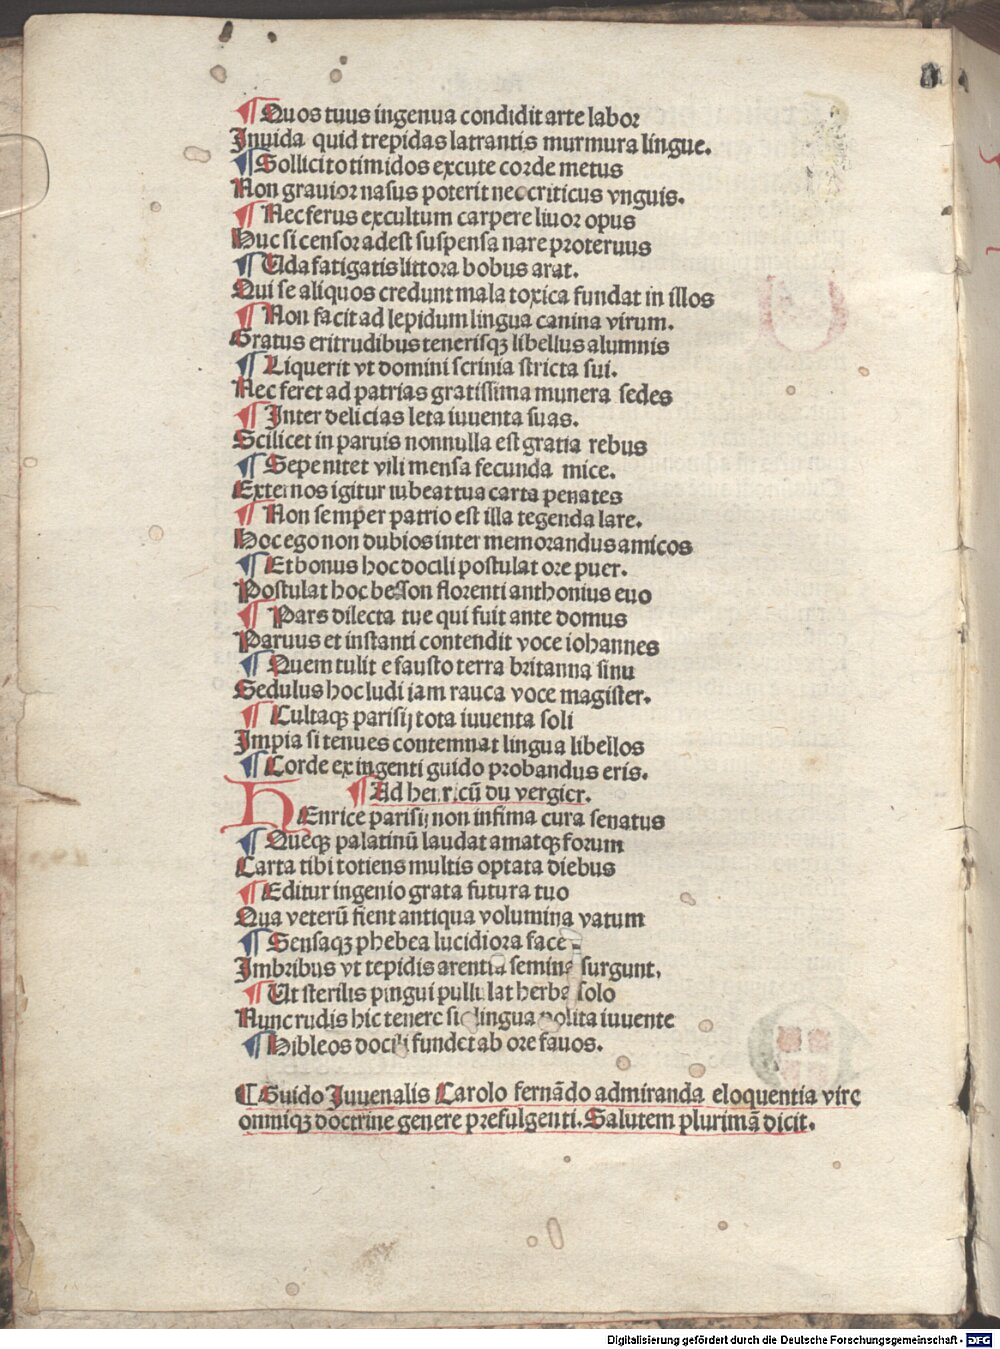 ¶ Quos tuus ingenua condidit arte labor
Inuida quid trepidas latrantis murmura lingue.
¶ Sollicito timidos excute corde metus
Non grauior nasus poterit nec criticus vnguis.
¶ Nec ferus excultum carpere liuor opus
Huc si censor adest suspensa nare proteruus
¶ Uda fatigatis littora bobus arat.
Qui se aliquos credunt mala toxica fundat in illos
¶ Non facit ad lepidum lingua canina virum.
Gratus erit rudibus tenerisqꝫ libellus alumnis
¶ Liquerit vt domini scrinia stricta sui.
Nec feret ad patrias gratissima munera sedes
¶ Inter delicias leta iuuenta suas.
Scilicet in paruis nonnulla est gratia rebus
¶ Sepe nitet vili mensa fecunda mice.
Externos igitur iubeat tua carta penates
¶ Non semper patrio est illa tegenda lare.
Hoc ego non dubios inter memorandus amicos
¶ Et bonus hoc docili postulat ore puer.
Postulat hoc florenti anthonius euo
¶ Pars dilecta tue qui fuit ante domus
Paruus et instanti contendit voce iohannes
¶ Quem tulit e fausto terra britanna sinu
Sedulus hoc ludi iam rauca voce magister.
¶ Cultaqꝫ parisij tota iuuenta soli
Impia si tenues contemnat lingua libellos
¶ Corde ex ingenti guido probandus eris.
¶ Ad henricū du vergier.
HEnrice parisij non infima cura senatus
¶ Queqꝫ palatinū laudat amatqꝫ forum
Carta tibi totiens multis optata diebus
¶ Editur ingenio grata futura tuo
Qua veterū fient antiqua volumina vatum
¶ Sensaqꝫ phebea lucidiora face
Imbribus vt tepidis arentia semina surgunt,
¶ Ut sterilis pingui pullulat herba solo
Nunc rudis hic tenere sic lingua polita iuuente
¶ Hibleos docili fundet ab ore fauos.
¶ Guido Iuuenalis Carolo fernādo admiranda eloquentia viro
omniqꝫ doctrine genere prefulgenti. Salutem plurimā dicit.
Digitalisierung gefördert durch die Deutsche Forschungsgemeinschaft - DFG